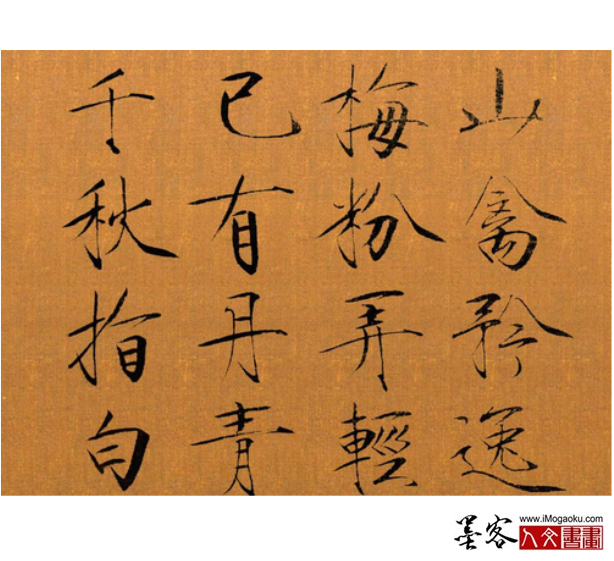 山禽矜逸
梅粉弄輕
已有丹青
千秋指白
墨客
www.iMogaoku.com
人文書畫